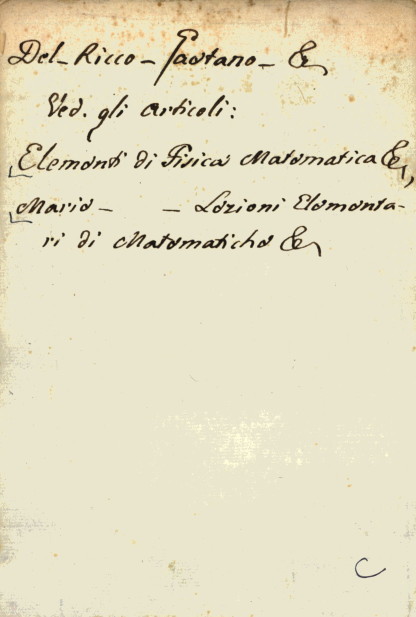 Del-Ricco - Gaetano - &
Ved. gli articoli:
Elementi di Fisica Matematica &,
Marie - - Lezioni Elementa-
ri di Matematiche &
C